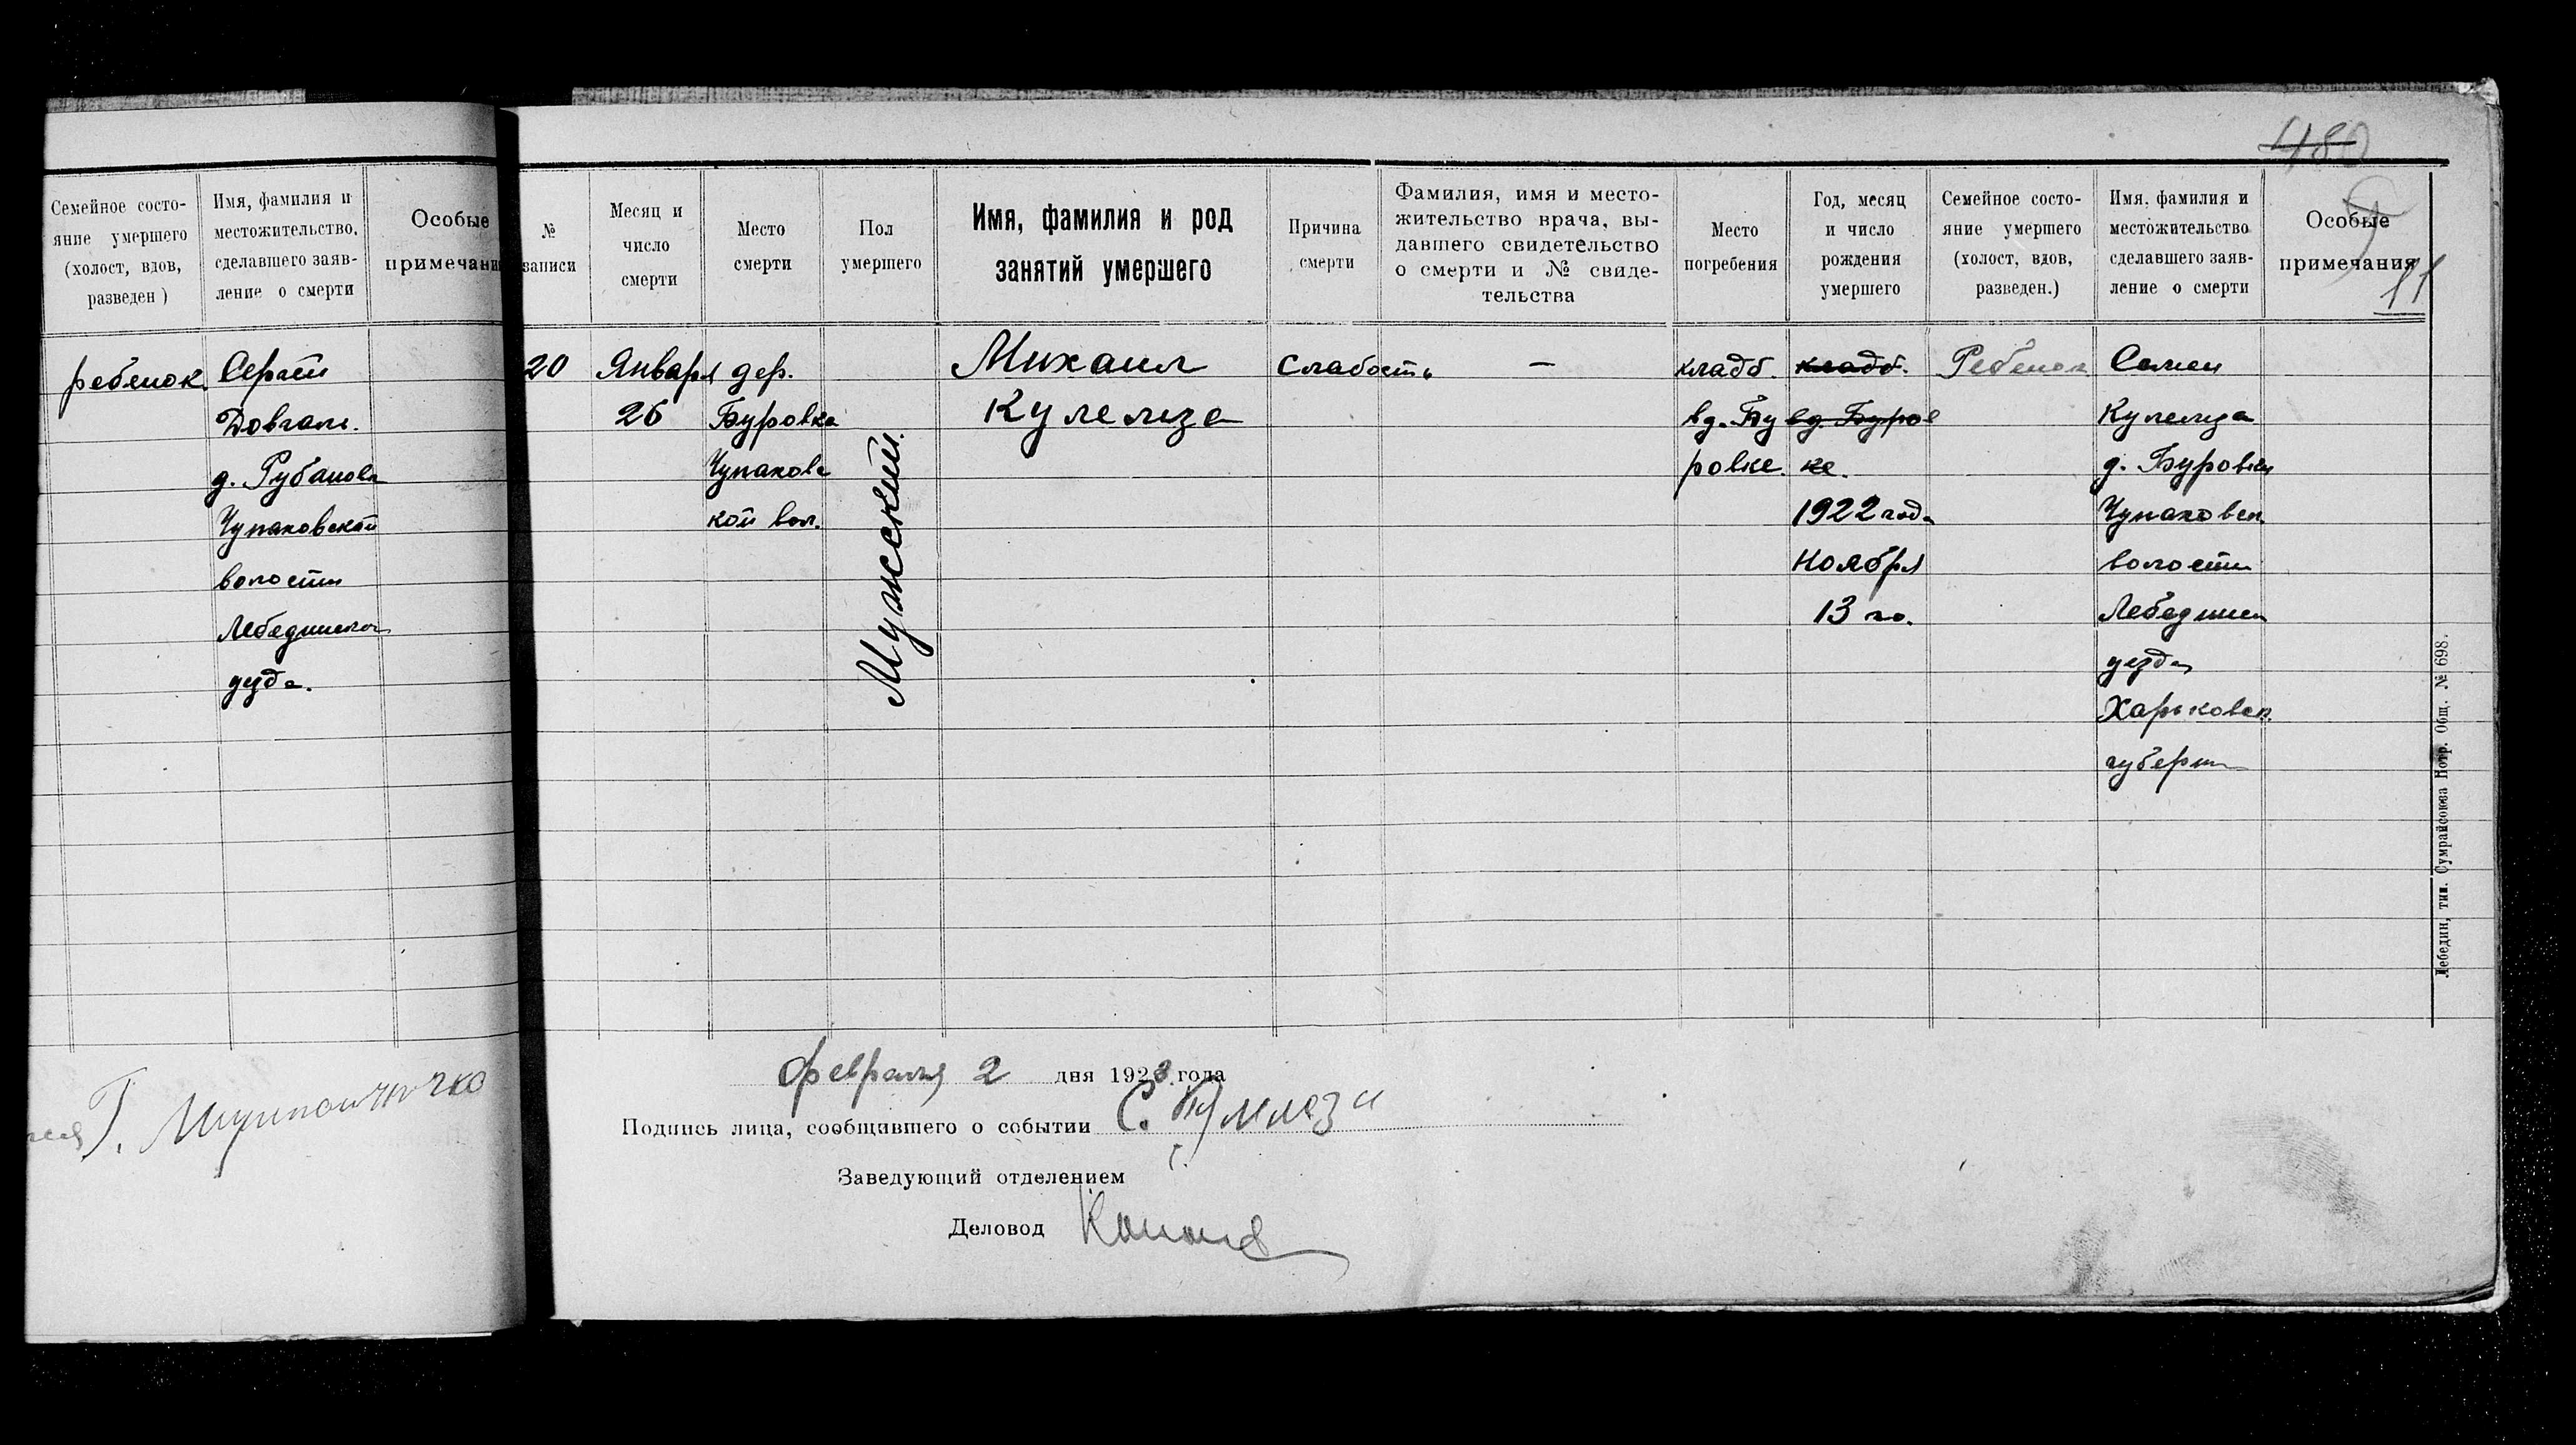 Семейное состо-
яние умершего
(холост, вдов,
разведен)
Имя, фамилия и
местожительство,
сделавшего заяв-
ление о смерти
Особые
примечани
ребенок
Сергей
Довгаль.
д. Рубановка
Чупаховской
волости
Лебединского
уезда.
480
11
№
записи
Месяц и
число
смерти
Место
смерти
Пол
умершего
Имя, фамилия и род
занятий умершего
Причина
смерти
Фамилия, имя и место-
жительство врача, вы-
давшего свидетельство
о смерти и № свиде-
тельства
Место
погребения
Год, месяц
и число
рождения
умершего
Семейное состо-
яние умершего
(холост, вдов,
разведен.)
Имя, фамилия и
местожительство
сделавшего заяв-
ление о смерти
Особые
примечания
20
Января
26
дер.
Буровка
Чупаховс
кой вол.
Мужский.
Михаил
Кулемза
Слабость
—
кладб.
в д. Бу
ровке.
кладб.
в д. Буров
ке.
1922 года
Ноября
13 го.
Ребенок
Семен
Кулемза
д. Буровки
Чупаховск
волости
Лебединск
уезда
Харьковск.
губерни
Февраля 2 дня 1923 года
Подпись лица, сообщившего о событии С.
Заведующий отделением
Деловод
Лебедин, тип. Сумрайсоюза Потр. Общ. № 698.